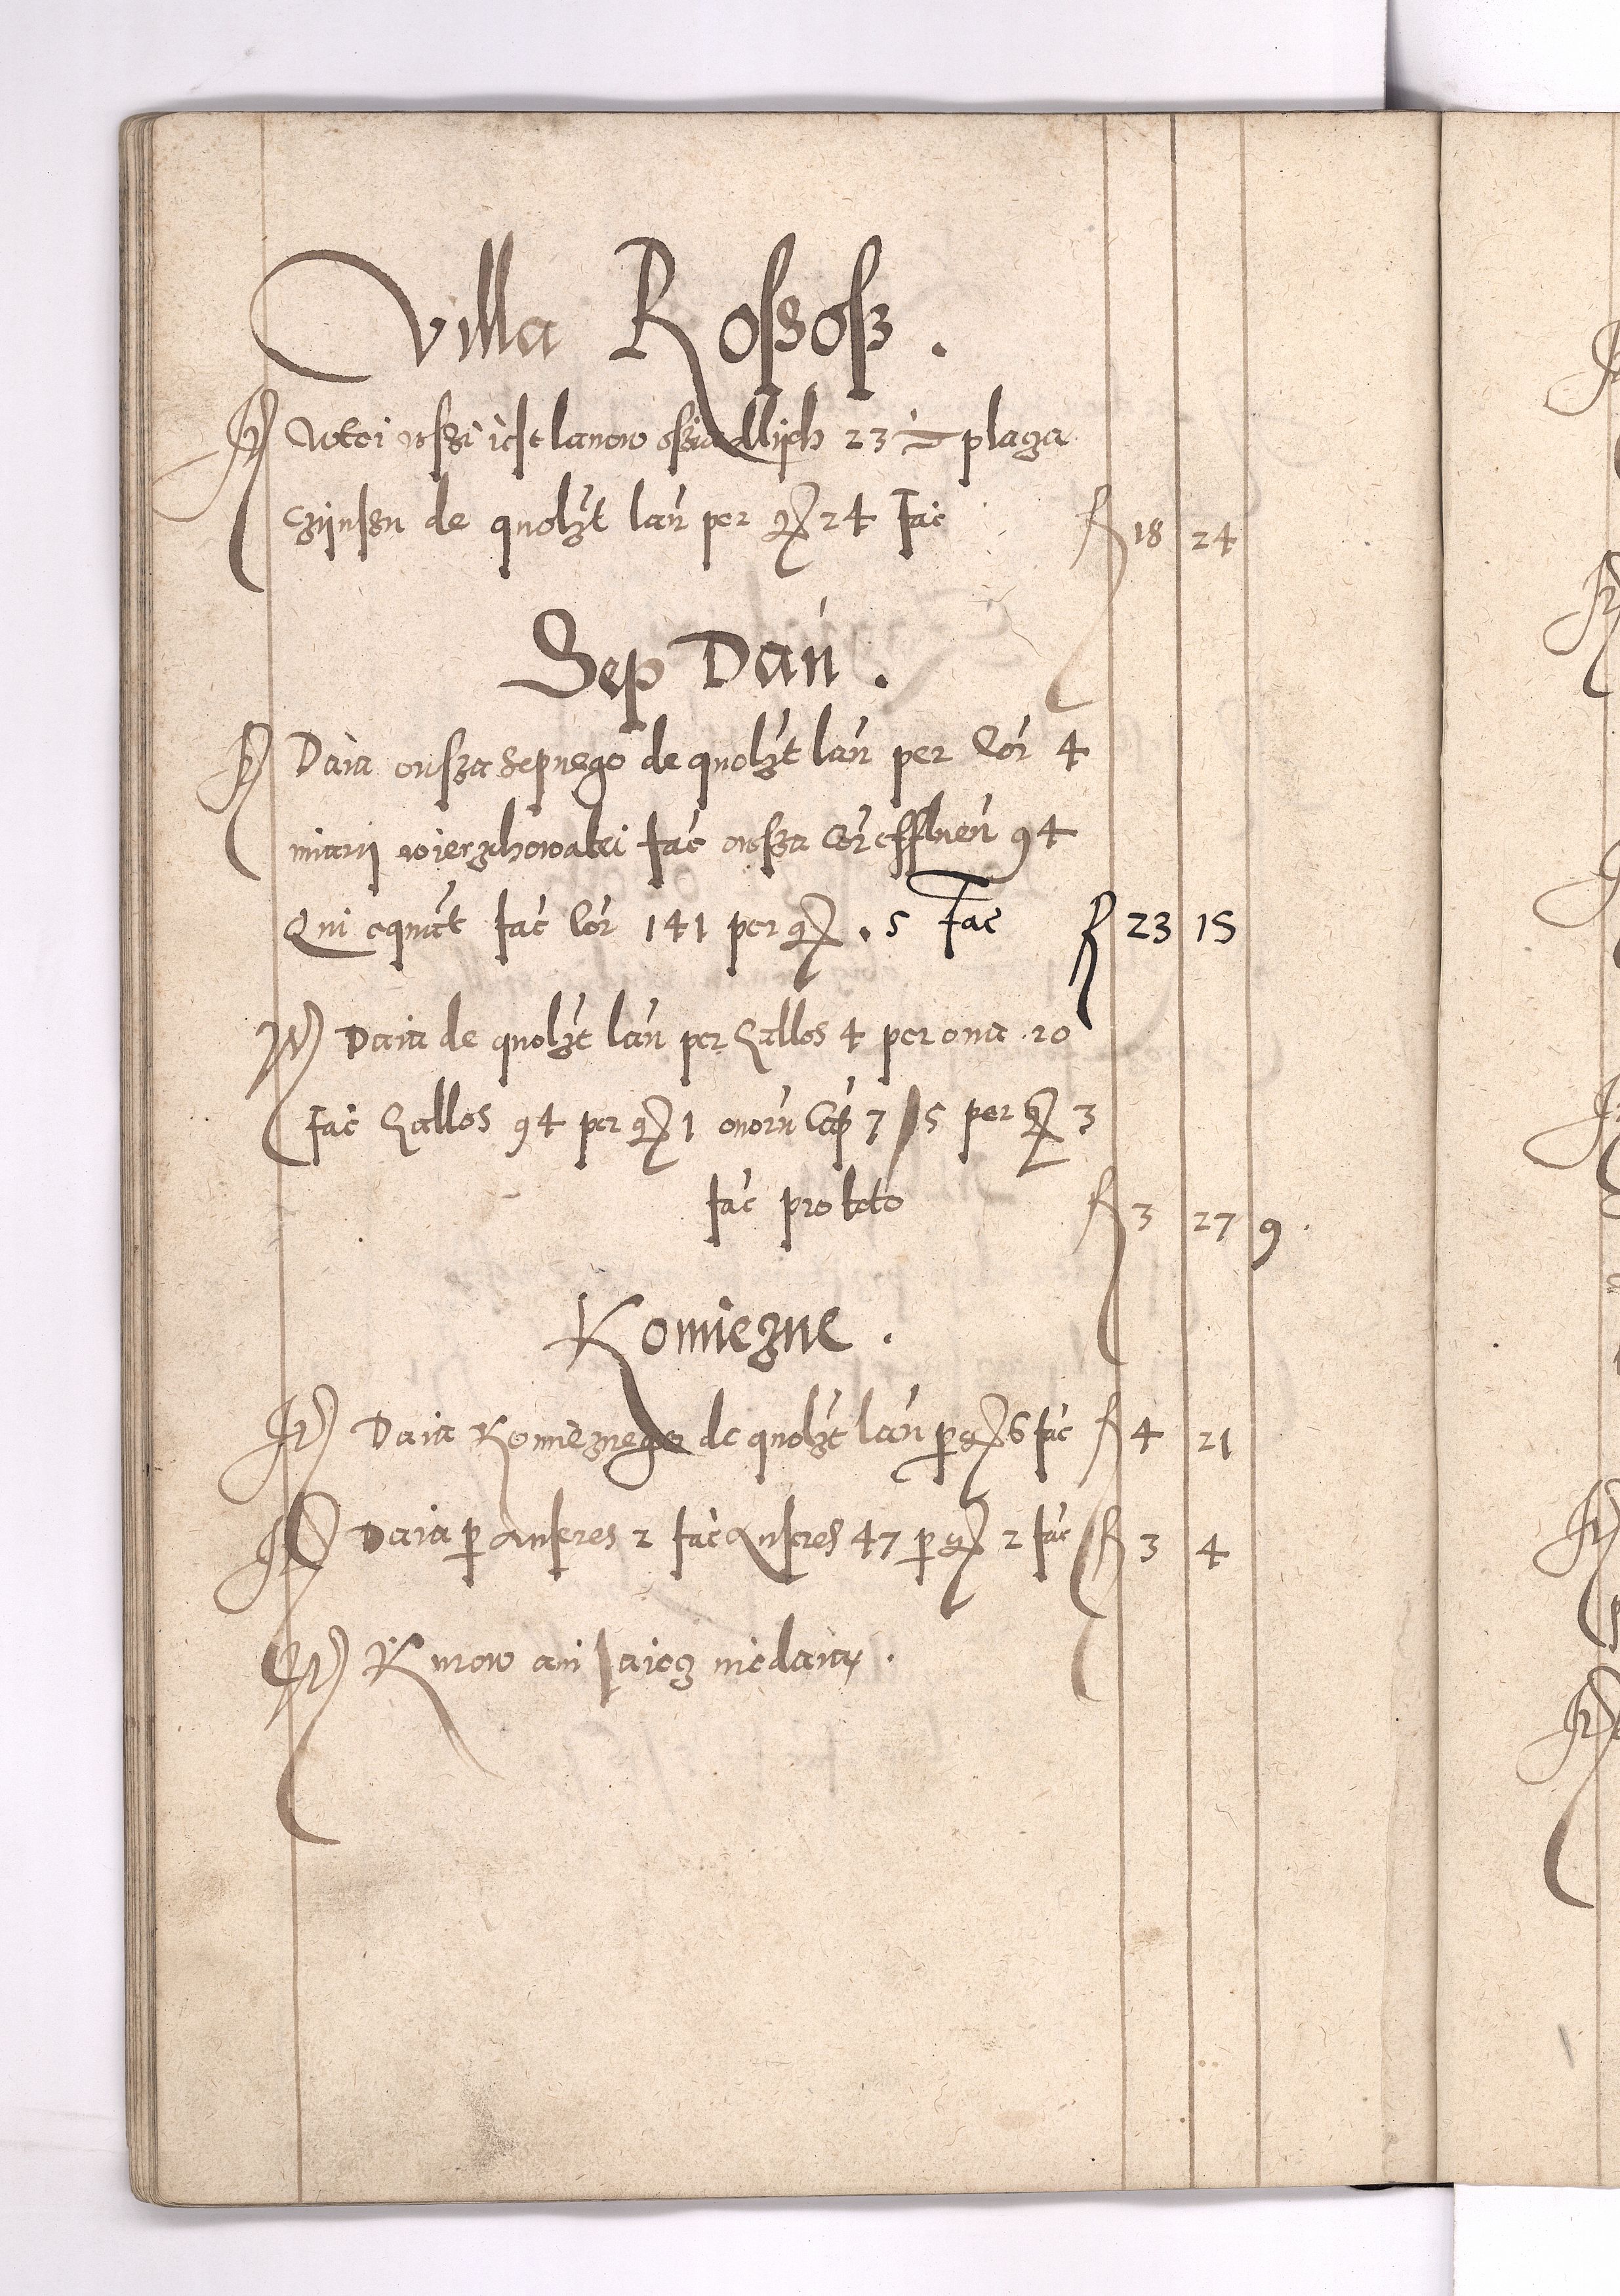 Villa Roßosz .
Jt Wtei wsszi iest lanow ossiadllÿch 23 ½ placza
czÿnszu de quolzt lań per gr 24 fac̃ fl 18 24
Sep Dań .
Jt Daia owsza sepnego de quolzt lań per Cor̃ 4
miari wierzchowatei fac̃ owsza Cor̃ effluen̄ 94
Qui equat̃ fac̃ Cor̃ 141 per gr . 5 Fac̃ fl 23 15
Jt Daia de quolzt lań per Gallos 4 per oua 20
fac̃ Gallos 94 per gr 1 ouorũ Cap̃ 7 / 5 per gr 3
fac̃ pro toto fl 3 27 9 .
Komiezne .
Jt Daia Komieznego de quolzt lań p gr 6 fac̃ fl 4 21
Jt Daia p Anseres 2 fac̃ Anseres 47 p gr 2 fac̃ fl 3 4
Jt Krow ani iaiecz niedaia .